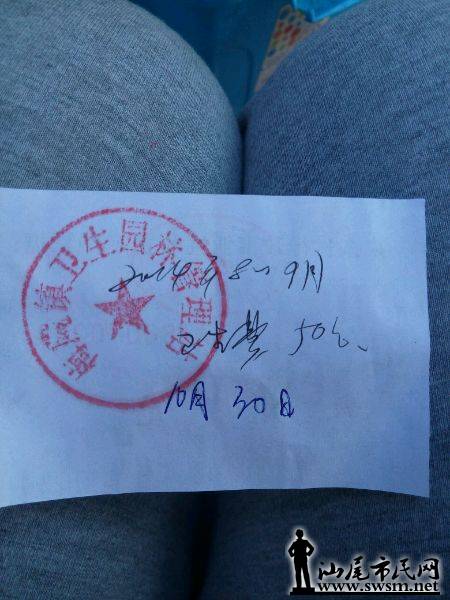 海城镇卫生园林管理站
2014年8-9月
卫生费 50元、
10月30日
汕尾市民网
www.swsm.net